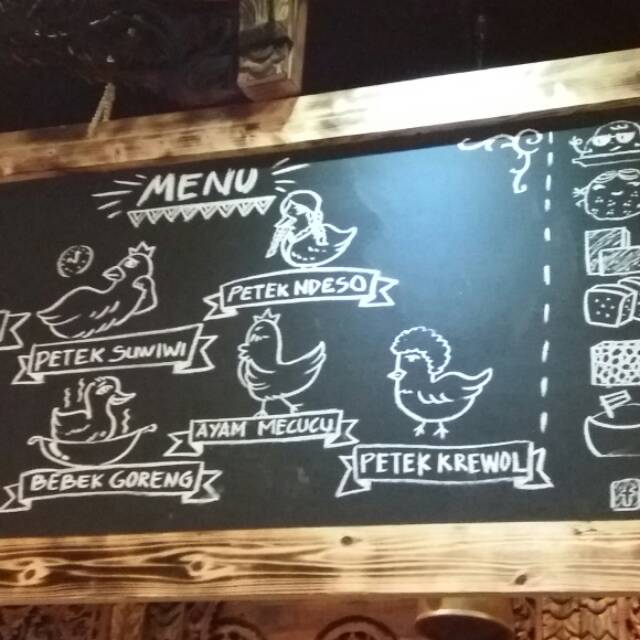 MENU
PETEK NDESO
PETEK SUWIWI
AYAM MECUCU
BEBEK GORENG
PETEK KREWOL